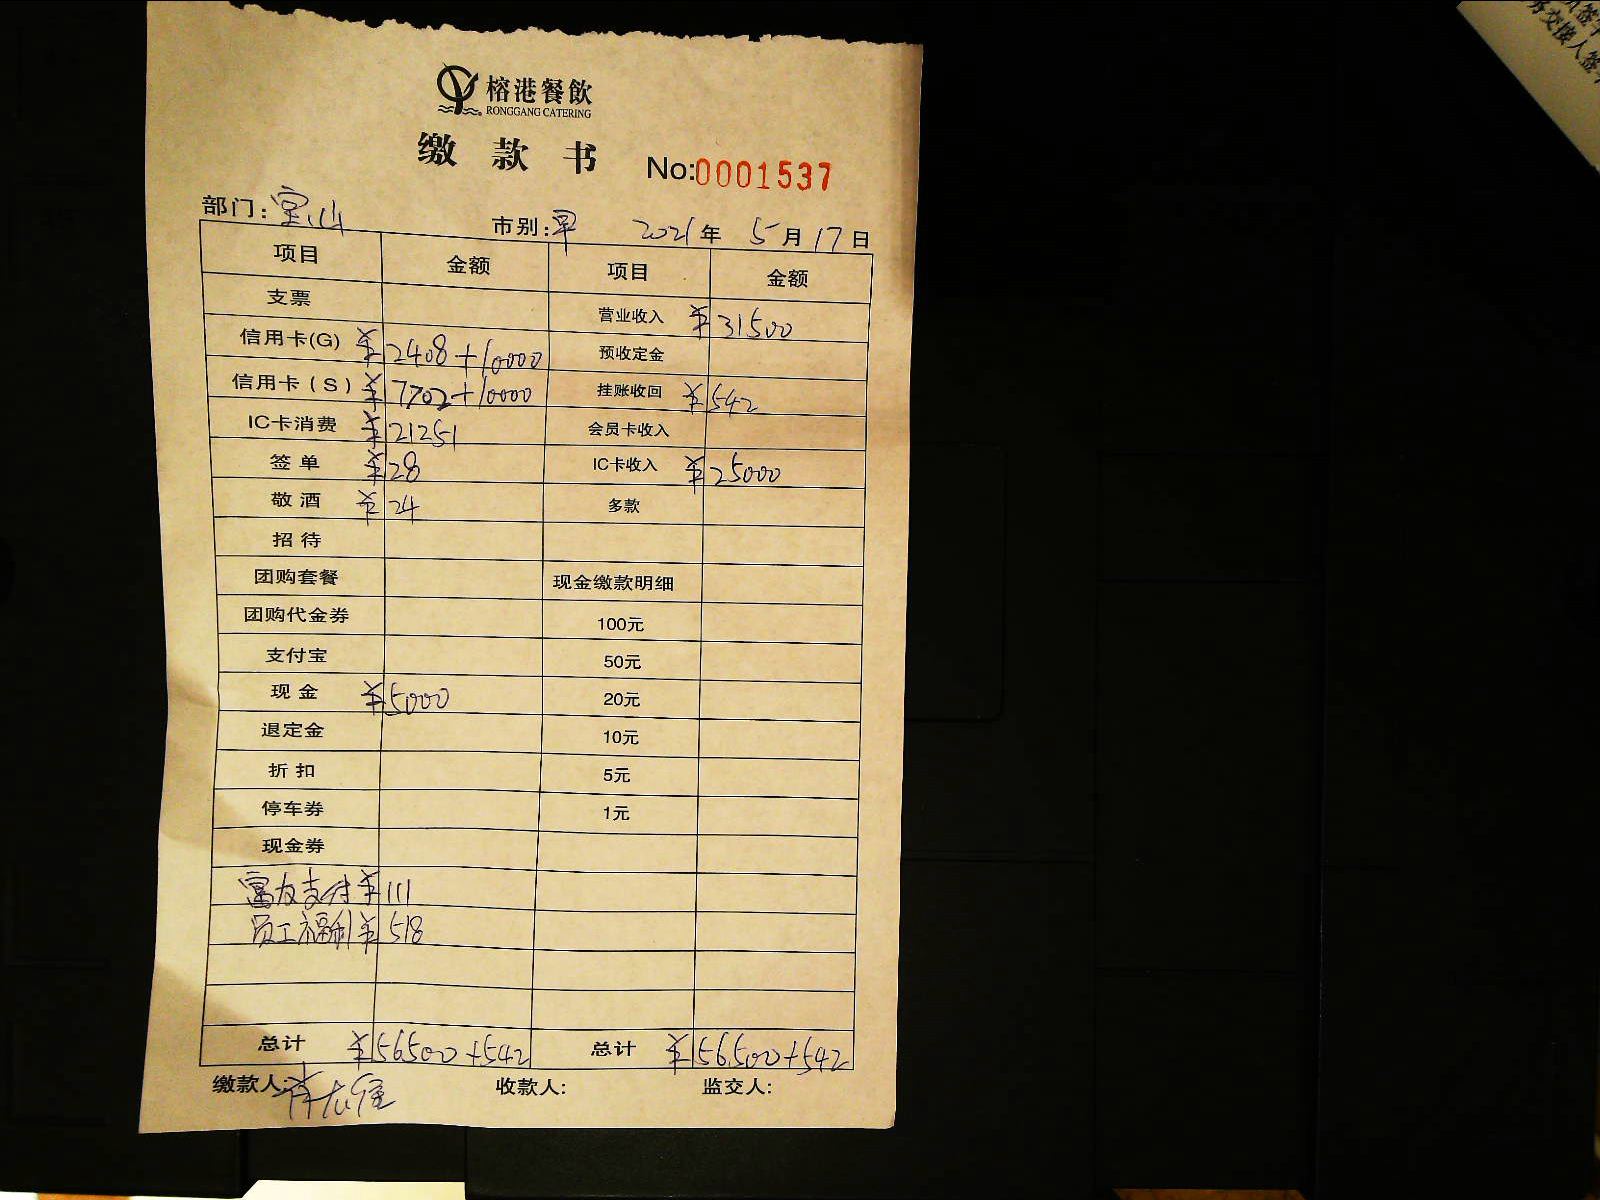 榕港餐飲
RONGGANG CATERING
缴款书 No:0001537
部门: 宝山 市别: 早 2021年 5月17日
项目 金额 项目 金额
支票 营业收入 ¥31500
信用卡(G) ¥2408+10000 预收定金
信用卡(S) ¥7702+10000 挂账收回 ¥542
IC卡消费 ¥21251 会员卡收入
签单 ¥28 IC卡收入 ¥25000
敬酒 ¥24 多款
招待
团购套餐 现金缴款明细
团购代金券 100元
支付宝 50元
现金 ¥5000 20元
退定金 10元
折扣 5元
停车券 1元
现金券
富友支付 ¥111
员工福利 ¥518
总计 ¥56500+542 总计 ¥56500+542
缴款人: 收款人: 监交人:
交接人签